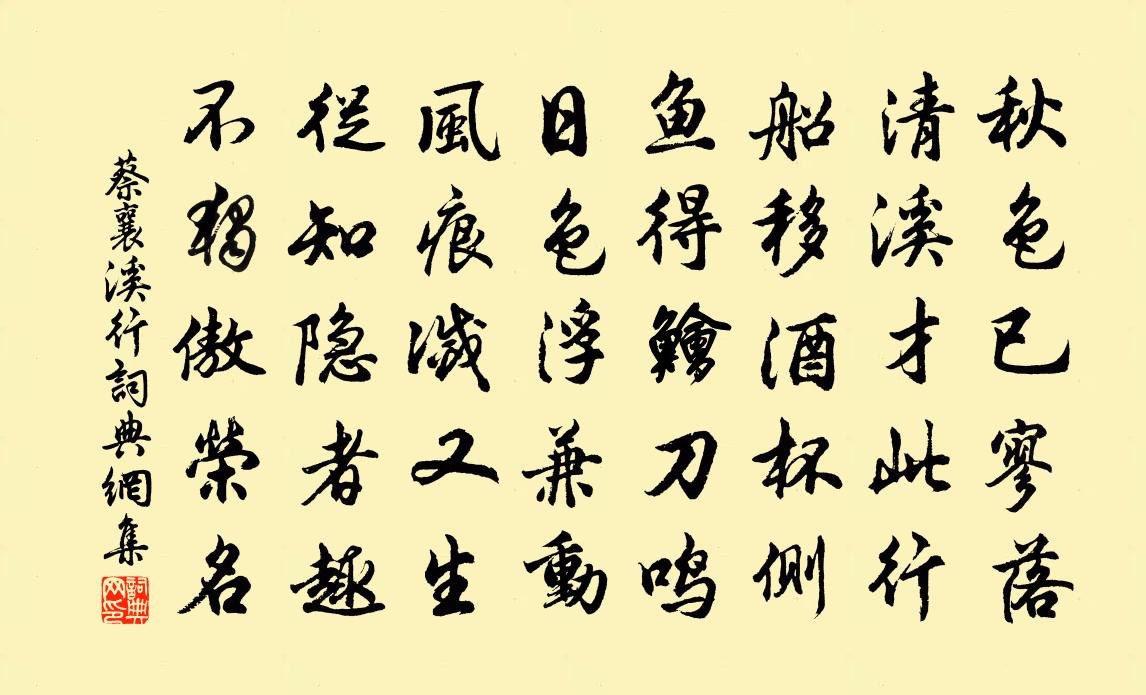 秋色已寥落
清溪才此行
船移酒杯侧
鱼得鱠刀鸣
日色浮兼動
風痕滅又生
從知隐者趣
不獨傲榮名
蔡襄溪行詞典網集
詞典網印